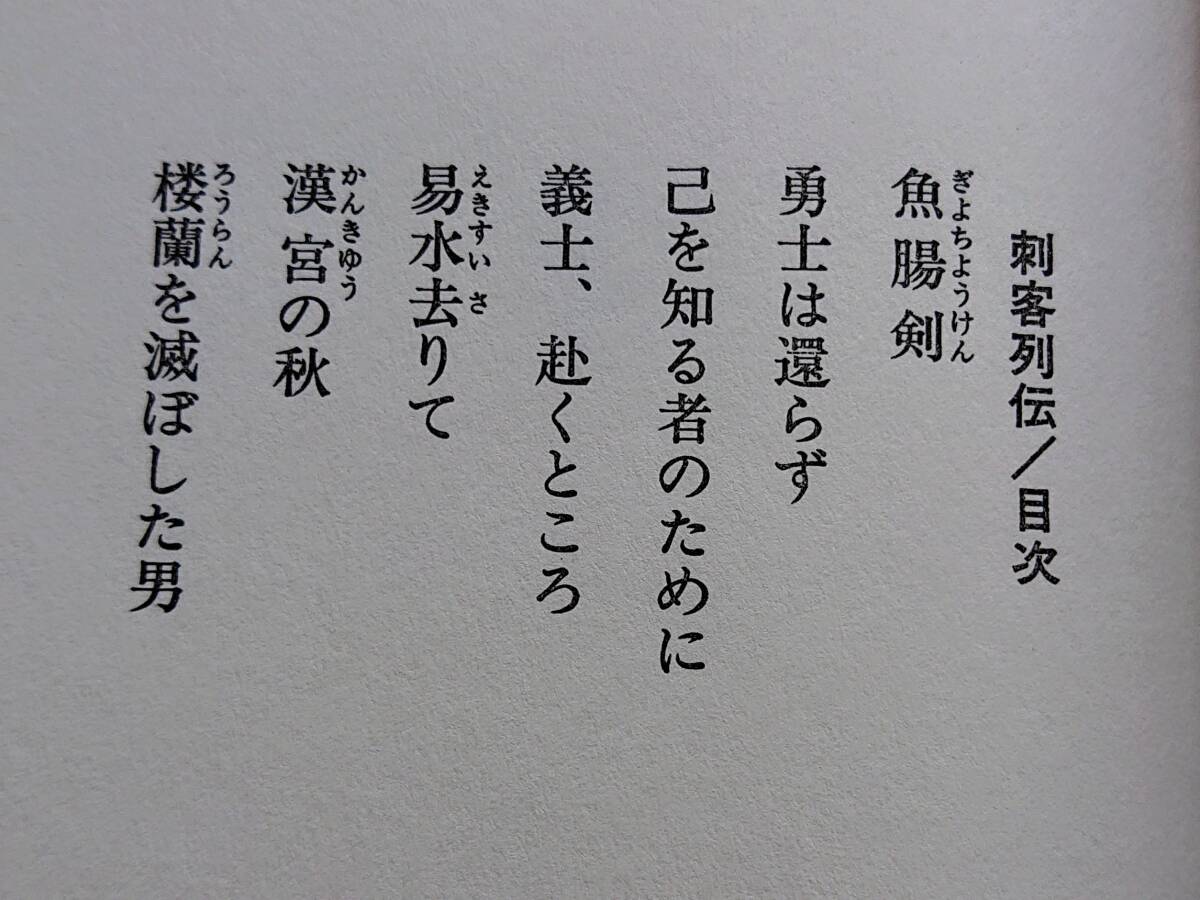 刺客列伝／目次
魚腸剣
ぎよちようけん
勇士は還らず
己を知る者のために
義士、赴くところ
易水去りて
えきすいさ
漢宮の秋
かんきゆう
楼蘭を滅ぼした男
ろうらん